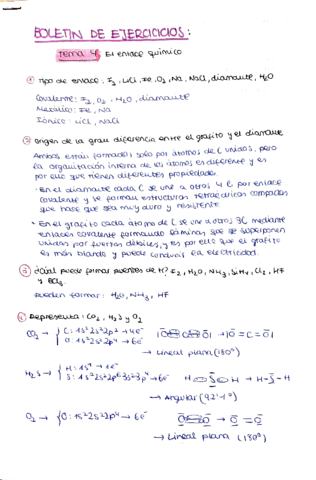 BOLETIN DE EJERCICIOS:
Tema 4: El enlace químico
① Tipo de enlace: I₂, LiCl, Fe, O₂, Na, NaCl, diamante, H₂O
Covalente: I₂, O₂, H₂O, diamante
Metálico: Fe, Na
Iónico: LiCl, NaCl
② Origen de la gran diferencia entre el grafito y el diamante
Ambos están formados solo por átomos de C unidos, pero
la organización interna de los átomos es diferente y es
por ello que tienen diferentes propiedades.
· En el diamante cada C se une a otros 4 C por enlace
covalente y se forman estructuras tetraédricas compactas
que hace que sea muy duro y resistente
· En el grafito cada átomo de C se une a otros 3C mediante
enlaces covalente formando láminas que se superponen
unidas por fuerzas débiles, y es por ello que el grafito
es más blando y puede conducir la electricidad.
③ ¿Cuál puede formar puentes de H? I₂, H₂O, NH₃, SiH₄, Cl₂, HF
y BCl₃.
Pueden formar: H₂O, NH₃, HF
④ Representa: CO₂, H₂S y O₂
CO₂ → C: 1s²2s²2p² → 4e⁻
O: 1s²2s²2p⁴ → 6e⁻
O = C = O
→ Lineal plana (180°)
H₂S → H: 1s¹ → 1e⁻
S: 1s²2s²2p⁶3s²3p⁴ → 6e⁻ H S H → H - S - H
→ Angular (92'1°)
O₂ → O: 1s²2s²2p⁴ → 6e⁻ → O = O
→ Lineal plana (180°)